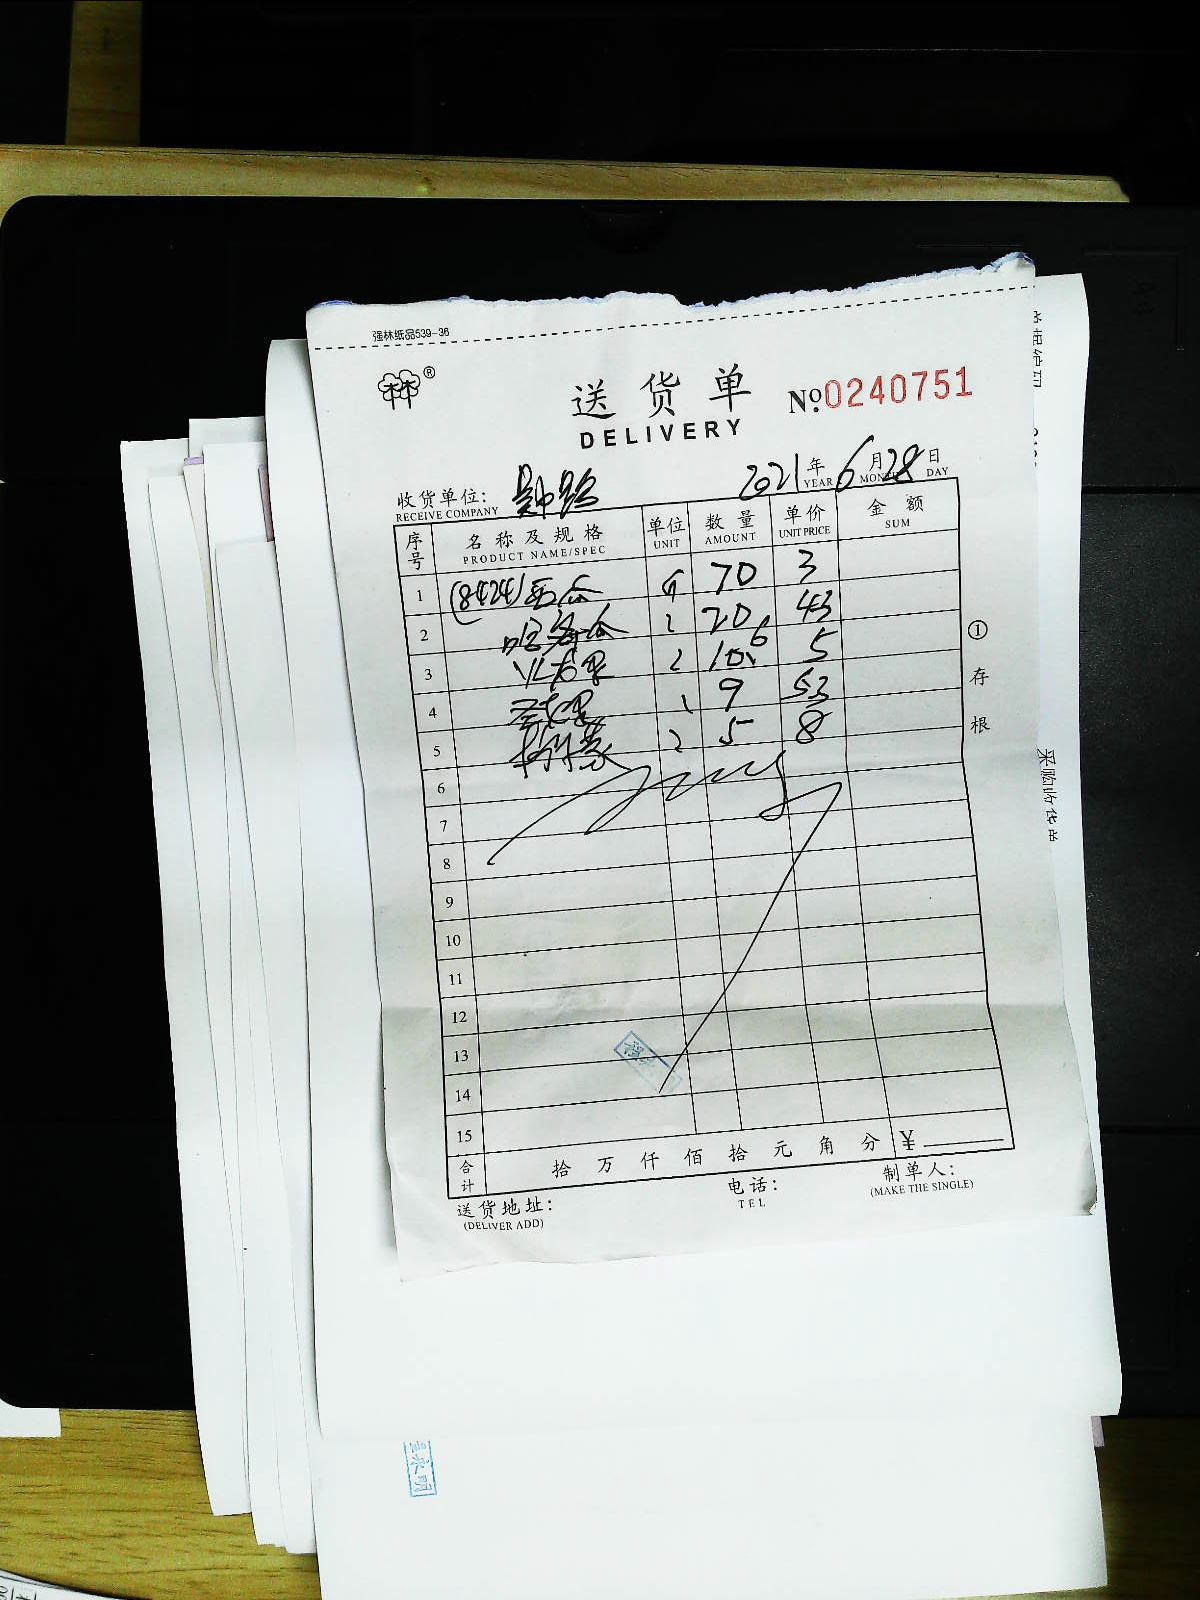 强林纸品539-36
®
送货单 №0240751
DELIVERY
收货单位: 2021年6月28日
RECEIVE COMPANY YEAR MONTH DAY
序号 名称及规格 单位 数量 单价 金额
PRODUCT NAME/SPEC UNIT AMOUNT UNIT PRICE SUM
1 (8424)西瓜 个 70 3
2 哈密瓜 20 43
3 火龙果 2 10.6 5
4 9 53
5 2 5 8
6
7
8
9
10
11
12
13
14
15
合计 拾万仟佰拾元角分 ¥
① 存根
送货地址: 电话: 制单人:
(DELIVER ADD) TEL (MAKE THE SINGLE)